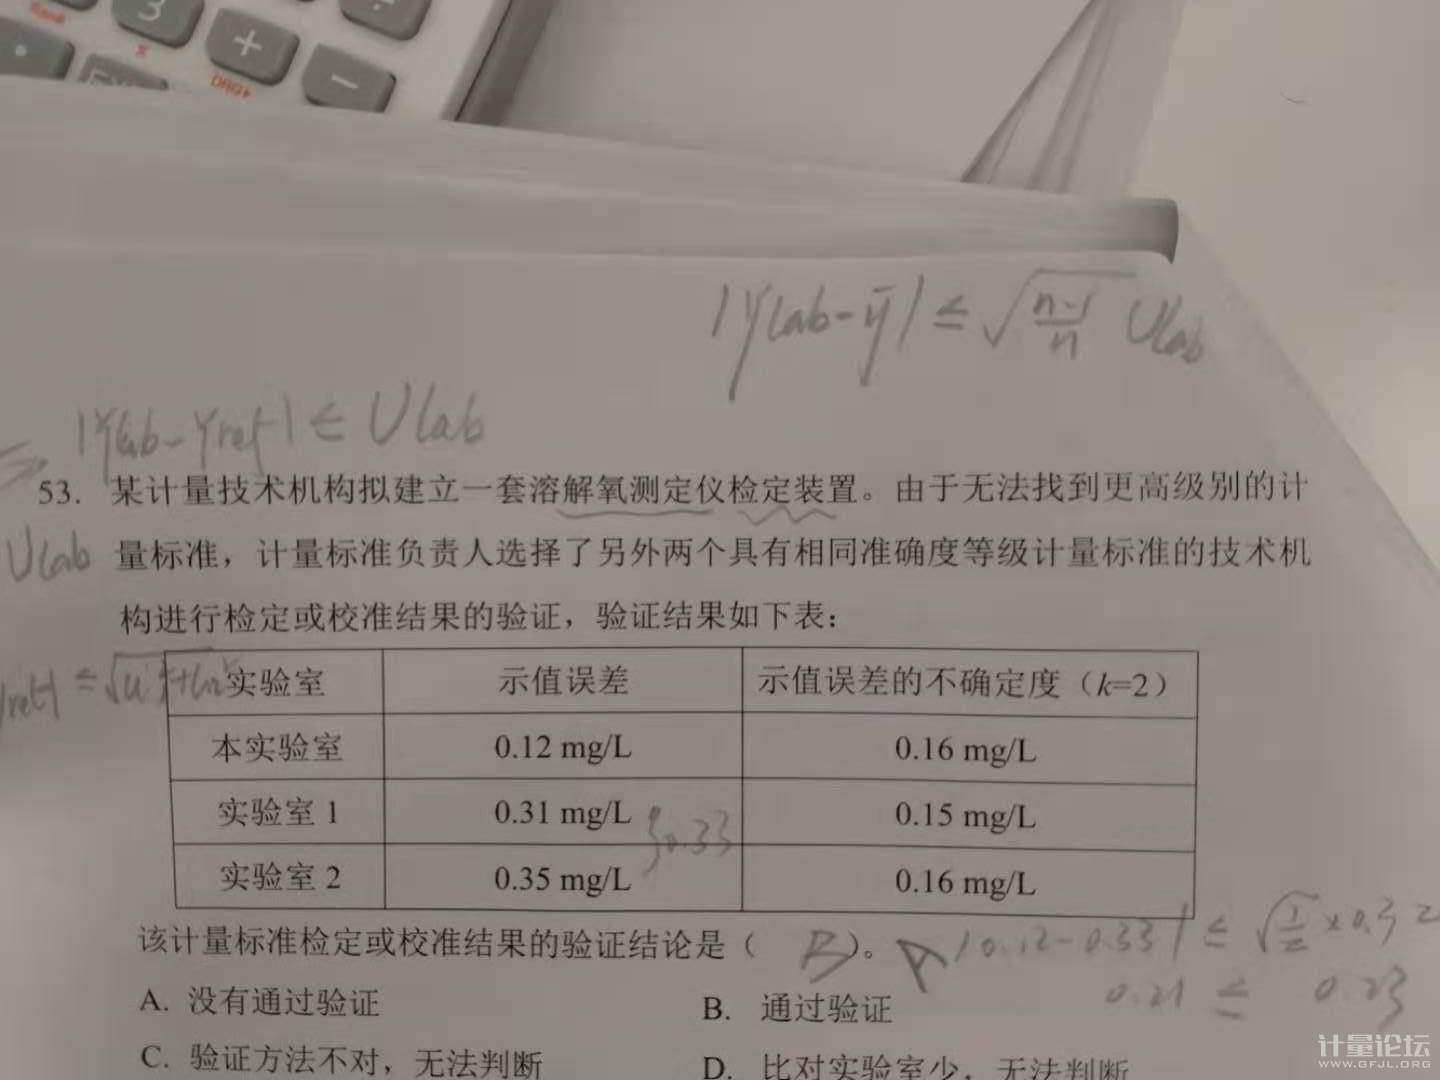 3
+
−
DRG▸
|Ylab-ȳ|≤√(n-1/n) Ulab
|Ylab-Yref|≤Ulab
53. 某计量技术机构拟建立一套溶解氧测定仪检定装置。由于无法找到更高级别的计
Ulab
量标准，计量标准负责人选择了另外两个具有相同准确度等级计量标准的技术机
构进行检定或校准结果的验证，验证结果如下表：
实验室 示值误差 示值误差的不确定度（k=2）
本实验室 0.12 mg/L 0.16 mg/L
实验室 1 0.31 mg/L 0.15 mg/L
}0.33
实验室 2 0.35 mg/L 0.16 mg/L
该计量标准检定或校准结果的验证结论是（ B ）。 A |0.12-0.33|≤√(1/2)×0.32
0.21 ≤ 0.23
A. 没有通过验证 B. 通过验证
C. 验证方法不对，无法判断 D. 比对实验室少，无法判断
计量论坛
WWW.GFJL.ORG